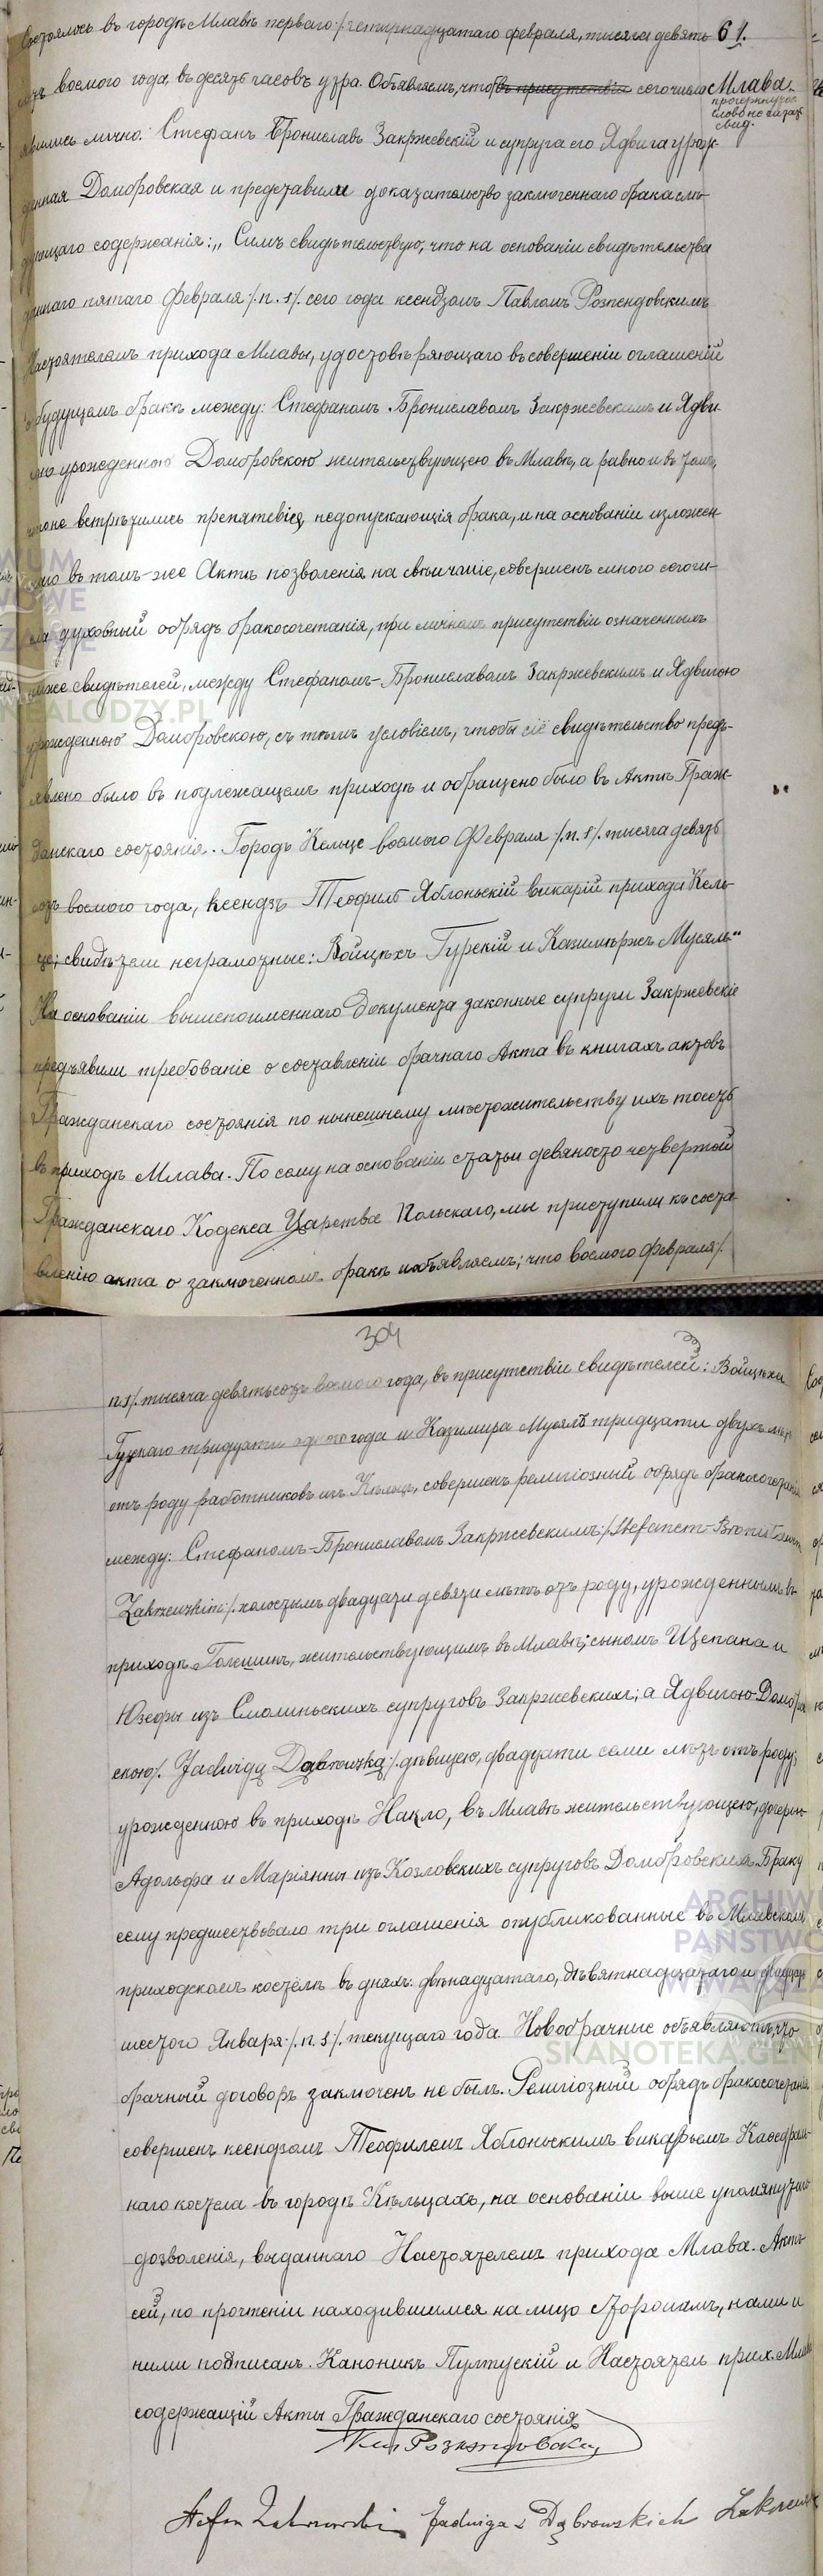 Состоялось въ городѣ Млавѣ перваго /:четырнадцатаго февраля, тысяча девять
61.
сотъ восьмого года, въ десять часовъ утра. Объявляемъ, что въ присутствіи сего числа
Млава.
прочеркнутое
слово не
явились лично: Стефанъ Брониславъ Закржевскій и супруга его Ядвига урож-
денная Домбровская и представили доказательство заключеннаго брака слѣ-
дующаго содержанія: „Симъ свидѣтельствую, что на основаніи свидѣтельства
даннаго пятаго Февраля /:н. s:/ сего года ксендзомъ Павломъ Розпендовскимъ
Настоятелемъ прихода Млавы, удостовѣряющаго въ совершеніи оглашеній
о будущемъ бракѣ между: Стефаномъ Брониславомъ Закржевскимъ и Ядви-
гою урожденною Домбровскою жительствующею въ Млавѣ, а равно и въ томъ,
что не встрѣтились препятствія, недопускающія брака, и на основаніи изложен-
наго въ томъ-же Актѣ позволенія на вѣнчаніе, совершенъ мною сего чи-
сла духовный обрядъ бракосочетанія, при личномъ присутствіи означенныхъ
ниже свидѣтелей, между Стефаномъ-Брониславомъ Закржевскимъ и Ядвигою
урожденною Домбровскою, съ тѣмъ условіемъ, чтобы сіё свидѣтельство предъ-
явлено было въ подлежащемъ приходѣ и обращено было въ Актъ Граж-
данскаго состоянія. Городъ Кельце восьмого Февраля /:н. s:/ тысяча девять
сотъ восьмого года, Ксендзъ Теофилъ Яблоньскій викарій прихода Кель-
це; свидѣтели неграмотные: Войцѣхъ Гурскій и Казимѣржъ Мусялъ“
На основаніи вышепоименнаго документа законные супруги Закржевскіе
предъявили требованіе о составленіи брачнаго Акта въ книгахъ актовъ
Гражданскаго состоянія по нынешнему мѣстожительству ихъ то есть
въ приходѣ Млава. По сему на основаніи статьи девяносто четвертой
Гражданскаго Кодекса Царства Польскаго, мы приступили къ соста-
вленію акта о заключенномъ бракѣ и объявляемъ; что восьмого Февраля /:
304
н. s:/ тысяча девятьсотъ восьмого года, въ присутствіи свидѣтелей: Войцѣха
Гурскаго тридцати одного года и Казимира Мусялъ тридцати двухъ лѣтъ
отъ роду работниковъ изъ Кѣльце, совершенъ религіозный обрядъ бракосочетанія
между: Стефаномъ-Брониславомъ Закржевскимъ /:Stefanem-Bronisławem
Zakrzewskim:/ холостымъ двадцати девяти лѣтъ отъ роду, урожденнымъ въ
приходѣ Голешинъ, жительствующимъ въ Млавѣ; сыномъ Щепана и
Юзефы изъ Смолиньскихъ супруговъ Закржевскихъ; а Ядвигою Домбров
скою /:Jadwigą Dąbrowską:/ дѣвицею, двадцати семи лѣтъ отъ роду;
урожденною въ приходѣ Накло, въ Млавѣ жительствующею, дочерью
Адольфа и Маріянны изъ Козловскихъ супруговъ Домбровскихъ. Браку
сему предшествовало три оглашенія опубликованные въ Млавскомъ
приходскомъ костёлѣ въ дняхъ: двѣнадцатаго, дѣвятнадцатаго и двадцать
шестого Января /:н. s:/ текущаго года. Новобрачные объявляютъ, что
брачный договоръ заключенъ не былъ. Религіозный обрядъ бракосочетанія
совершенъ ксендзомъ Теофилемъ Яблоньскимъ викарьемъ Каѳедраль-
наго костела въ городѣ Кѣльцахъ, на основаніи выше упомянутаго
дозволенія, выданнаго Настоятелемъ прихода Млава. Актъ
сей, по прочтеніи находившимся на лицо Сторонамъ, нами и
ними подписанъ. Каноникъ Пултускій и Настоятель прих. Млава
содержащій Акты Гражданскаго состоянія
Stefan Zakrzewski Jadwiga z Dąbrowskich Zakrzewska
ARCHIWUM
PAŃSTWOWE
W WARSZAWIE
SKANOTEKA.GENEALODZY.PL